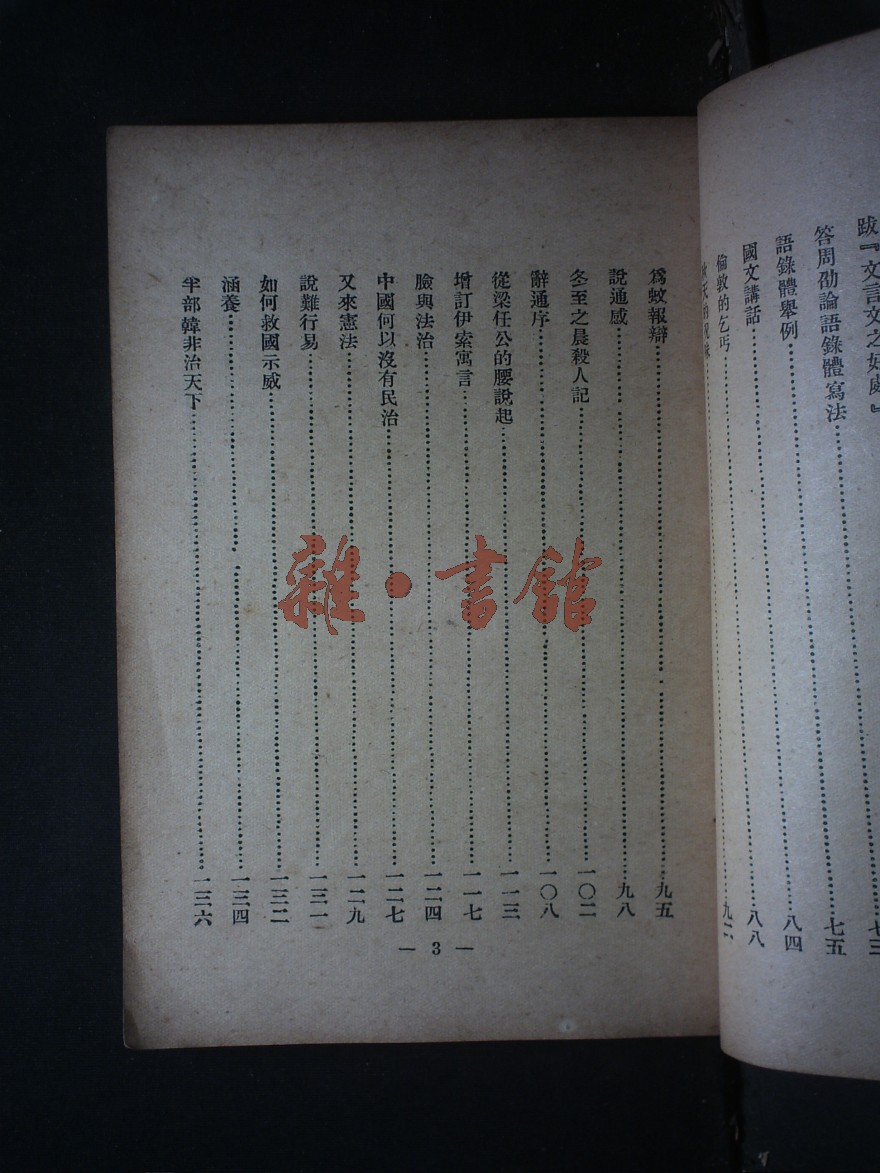 跋『文言文之好處』……七三
答周劭論語錄體寫法……七五
語錄體舉例……八四
國文講話……八八
倫敦的乞丐……九二
爲蚊報辯……九五
說通感……九八
冬至之晨殺人記……一〇二
辭通序……一〇八
從梁任公的腰說起……一一三
增訂伊索寓言……一一七
臉與法治……一二四
中國何以沒有民治……一二七
又來憲法……一二九
說難行易……一三一
如何救國示威……一三二
涵養……一三四
半部韓非治天下……一三六
— 3 —
雜·書館